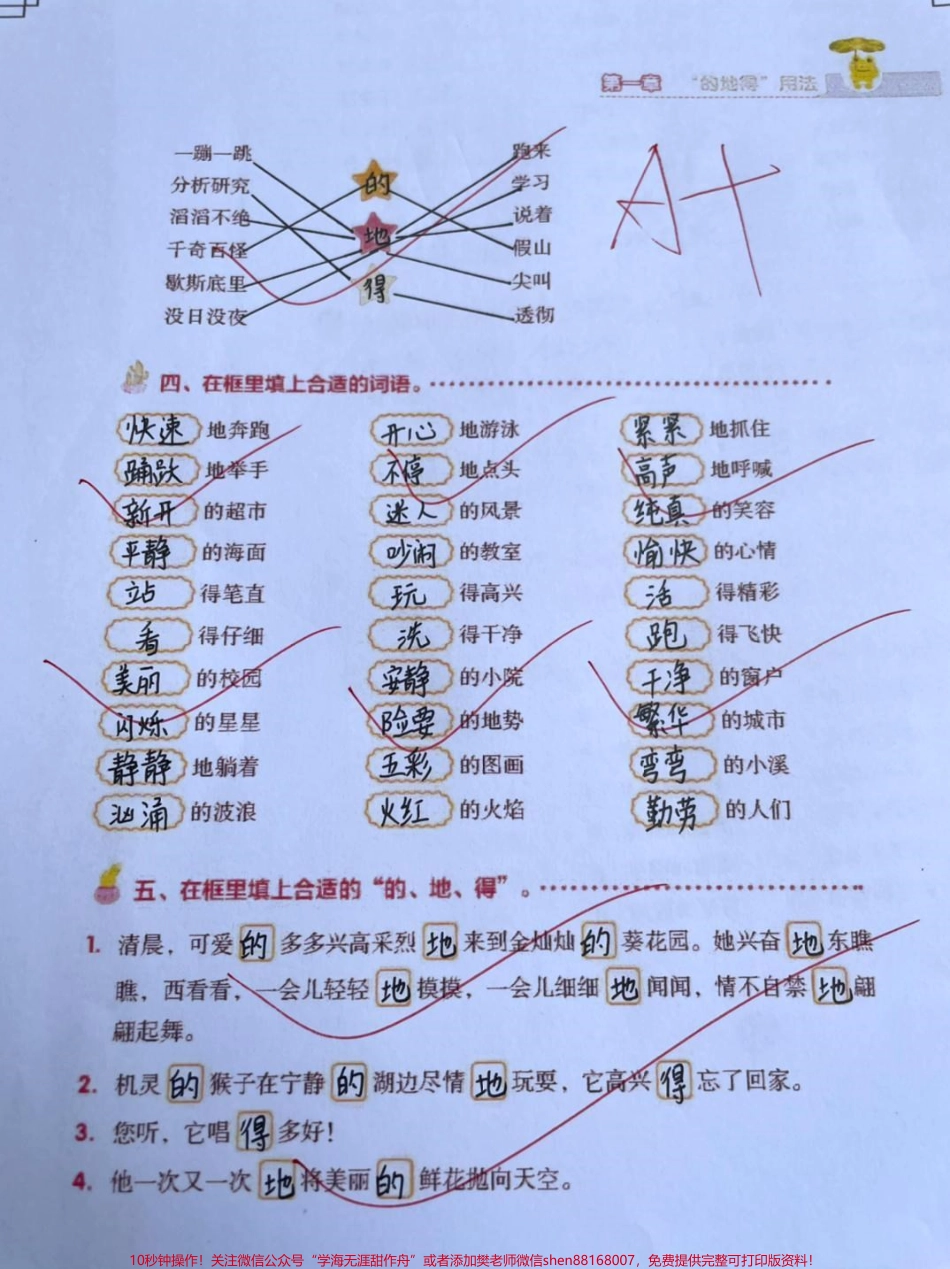 第一章 “的地得”用法
一蹦一跳 跑来
分析研究 的 学习
滔滔不绝 地 说着
千奇百怪 假山
歇斯底里 得 尖叫
没日没夜 透彻
A+
四、在框里填上合适的词语。
快速 地奔跑 开心 地游泳 紧紧 地抓住
踊跃 地举手 不停 地点头 高声 地呼喊
新开 的超市 迷人 的风景 纯真 的笑容
平静 的海面 吵闹 的教室 愉快 的心情
站 得笔直 玩 得高兴 活 得精彩
看 得仔细 洗 得干净 跑 得飞快
美丽 的校园 安静 的小院 干净 的窗户
闪烁 的星星 险要 的地势 繁华 的城市
静静 地躺着 五彩 的图画 弯弯 的小溪
汹涌 的波浪 火红 的火焰 勤劳 的人们
五、在框里填上合适的“的、地、得”。
1. 清晨，可爱 的 多多兴高采烈 地 来到金灿灿 的 葵花园。她兴奋 地 东瞧
瞧，西看看，一会儿轻轻 地 摸摸，一会儿细细 地 闻闻，情不自禁 地 翩
翩起舞。
2. 机灵 的 猴子在宁静 的 湖边尽情 地 玩耍，它高兴 得 忘了回家。
3. 您听，它唱 得 多好！
4. 他一次又一次 地 将美丽 的 鲜花抛向天空。
10秒钟操作！关注微信公众号“学海无涯甜作舟”或者添加樊老师微信shen88168007，免费提供完整可打印版资料！